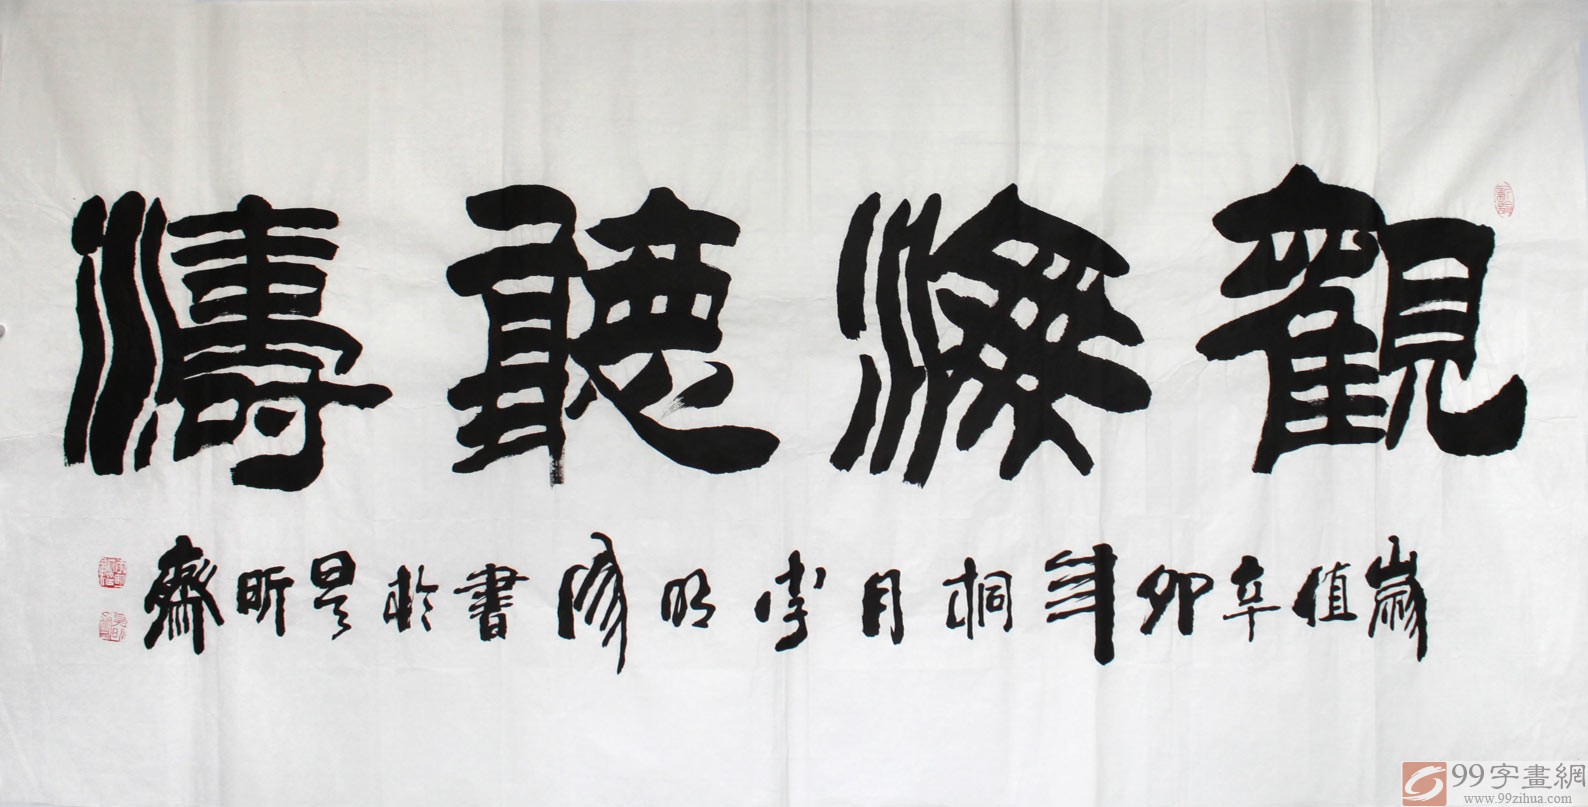 觀海聽濤
歲值辛卯年桐月李明修書於昊昕齋
99字畫網
www.99zihua.com